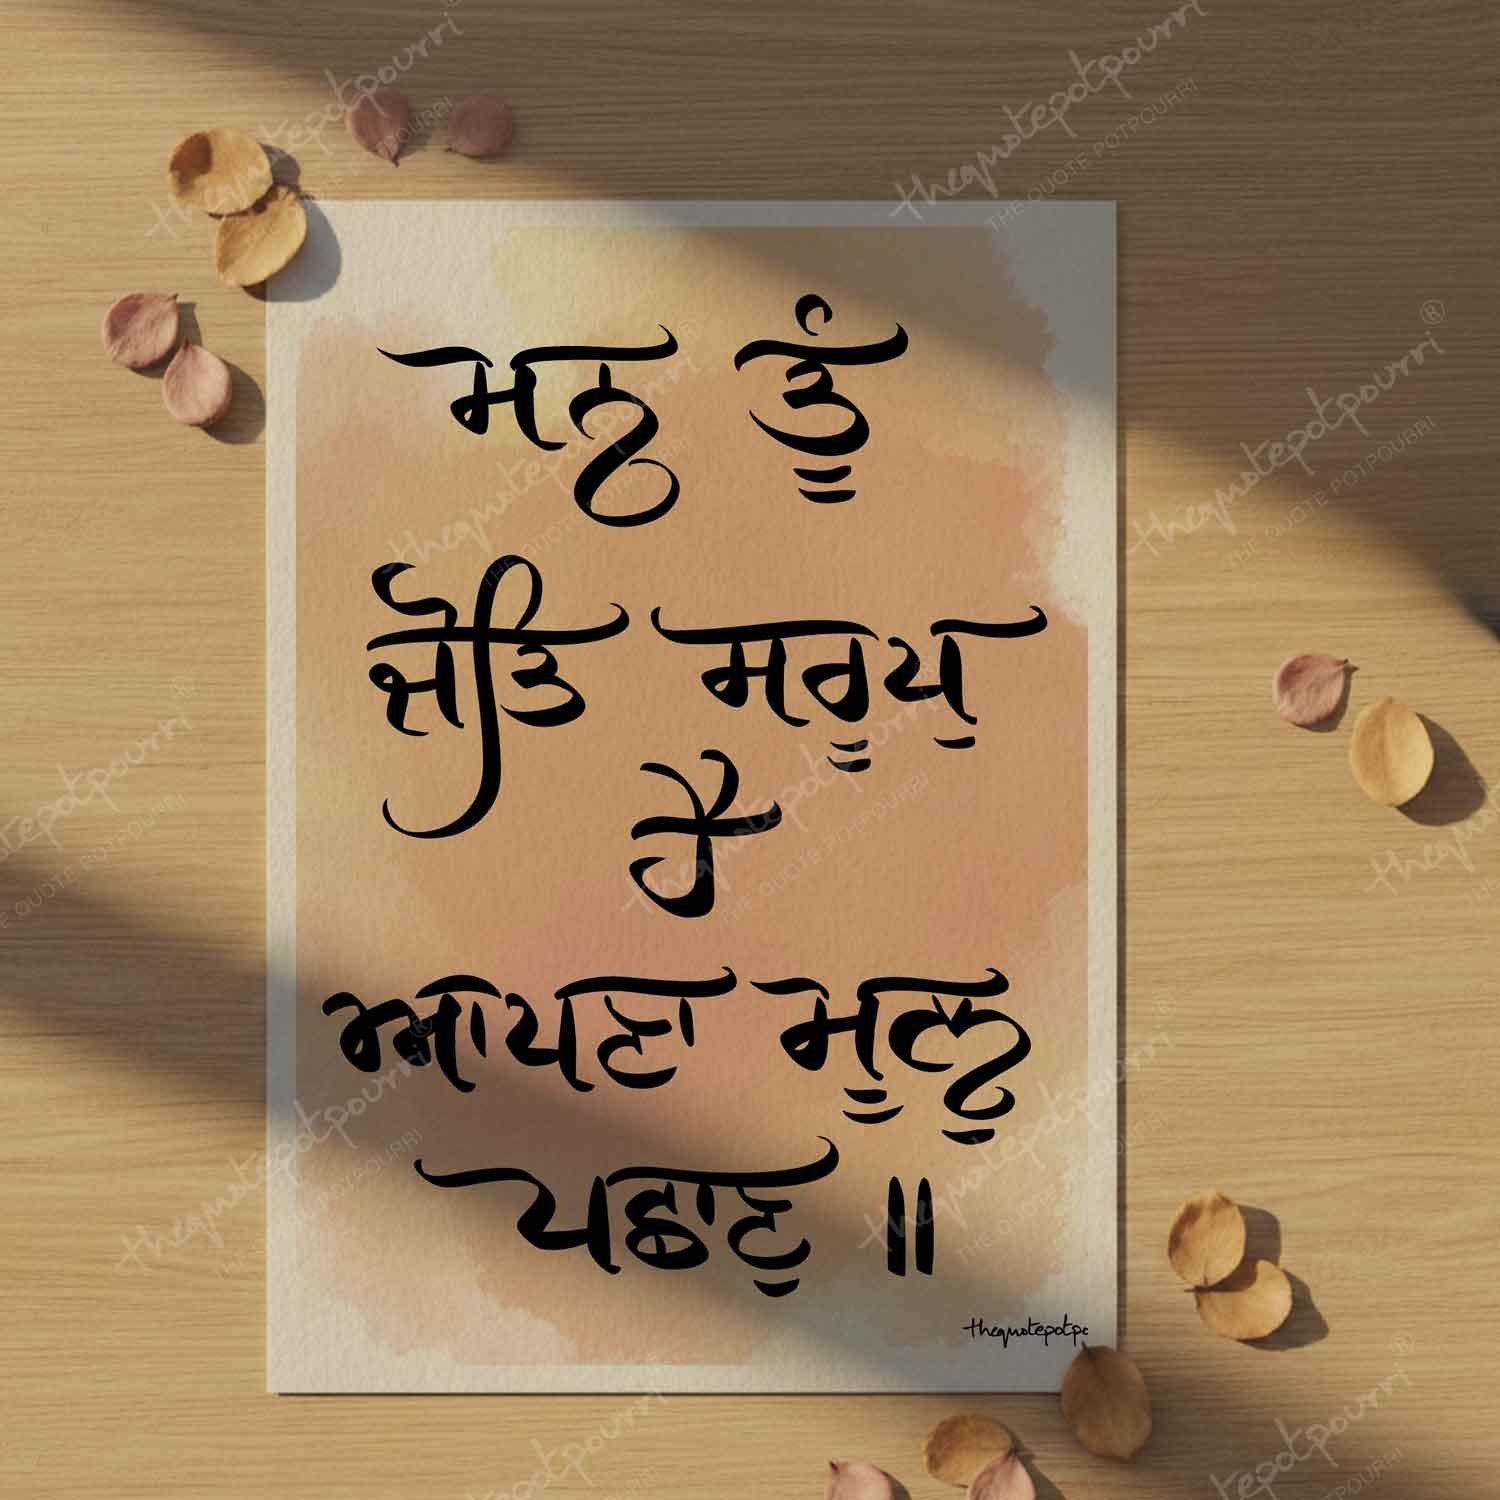 ਮਨ ਤੂੰ
ਜੋਤਿ ਸਰੂਪੁ
ਹੈ
ਆਪਣਾ ਮੂਲੁ
ਪਛਾਣੁ ॥
thequotepotpourri ®
THE QUOTE POTPOURRI